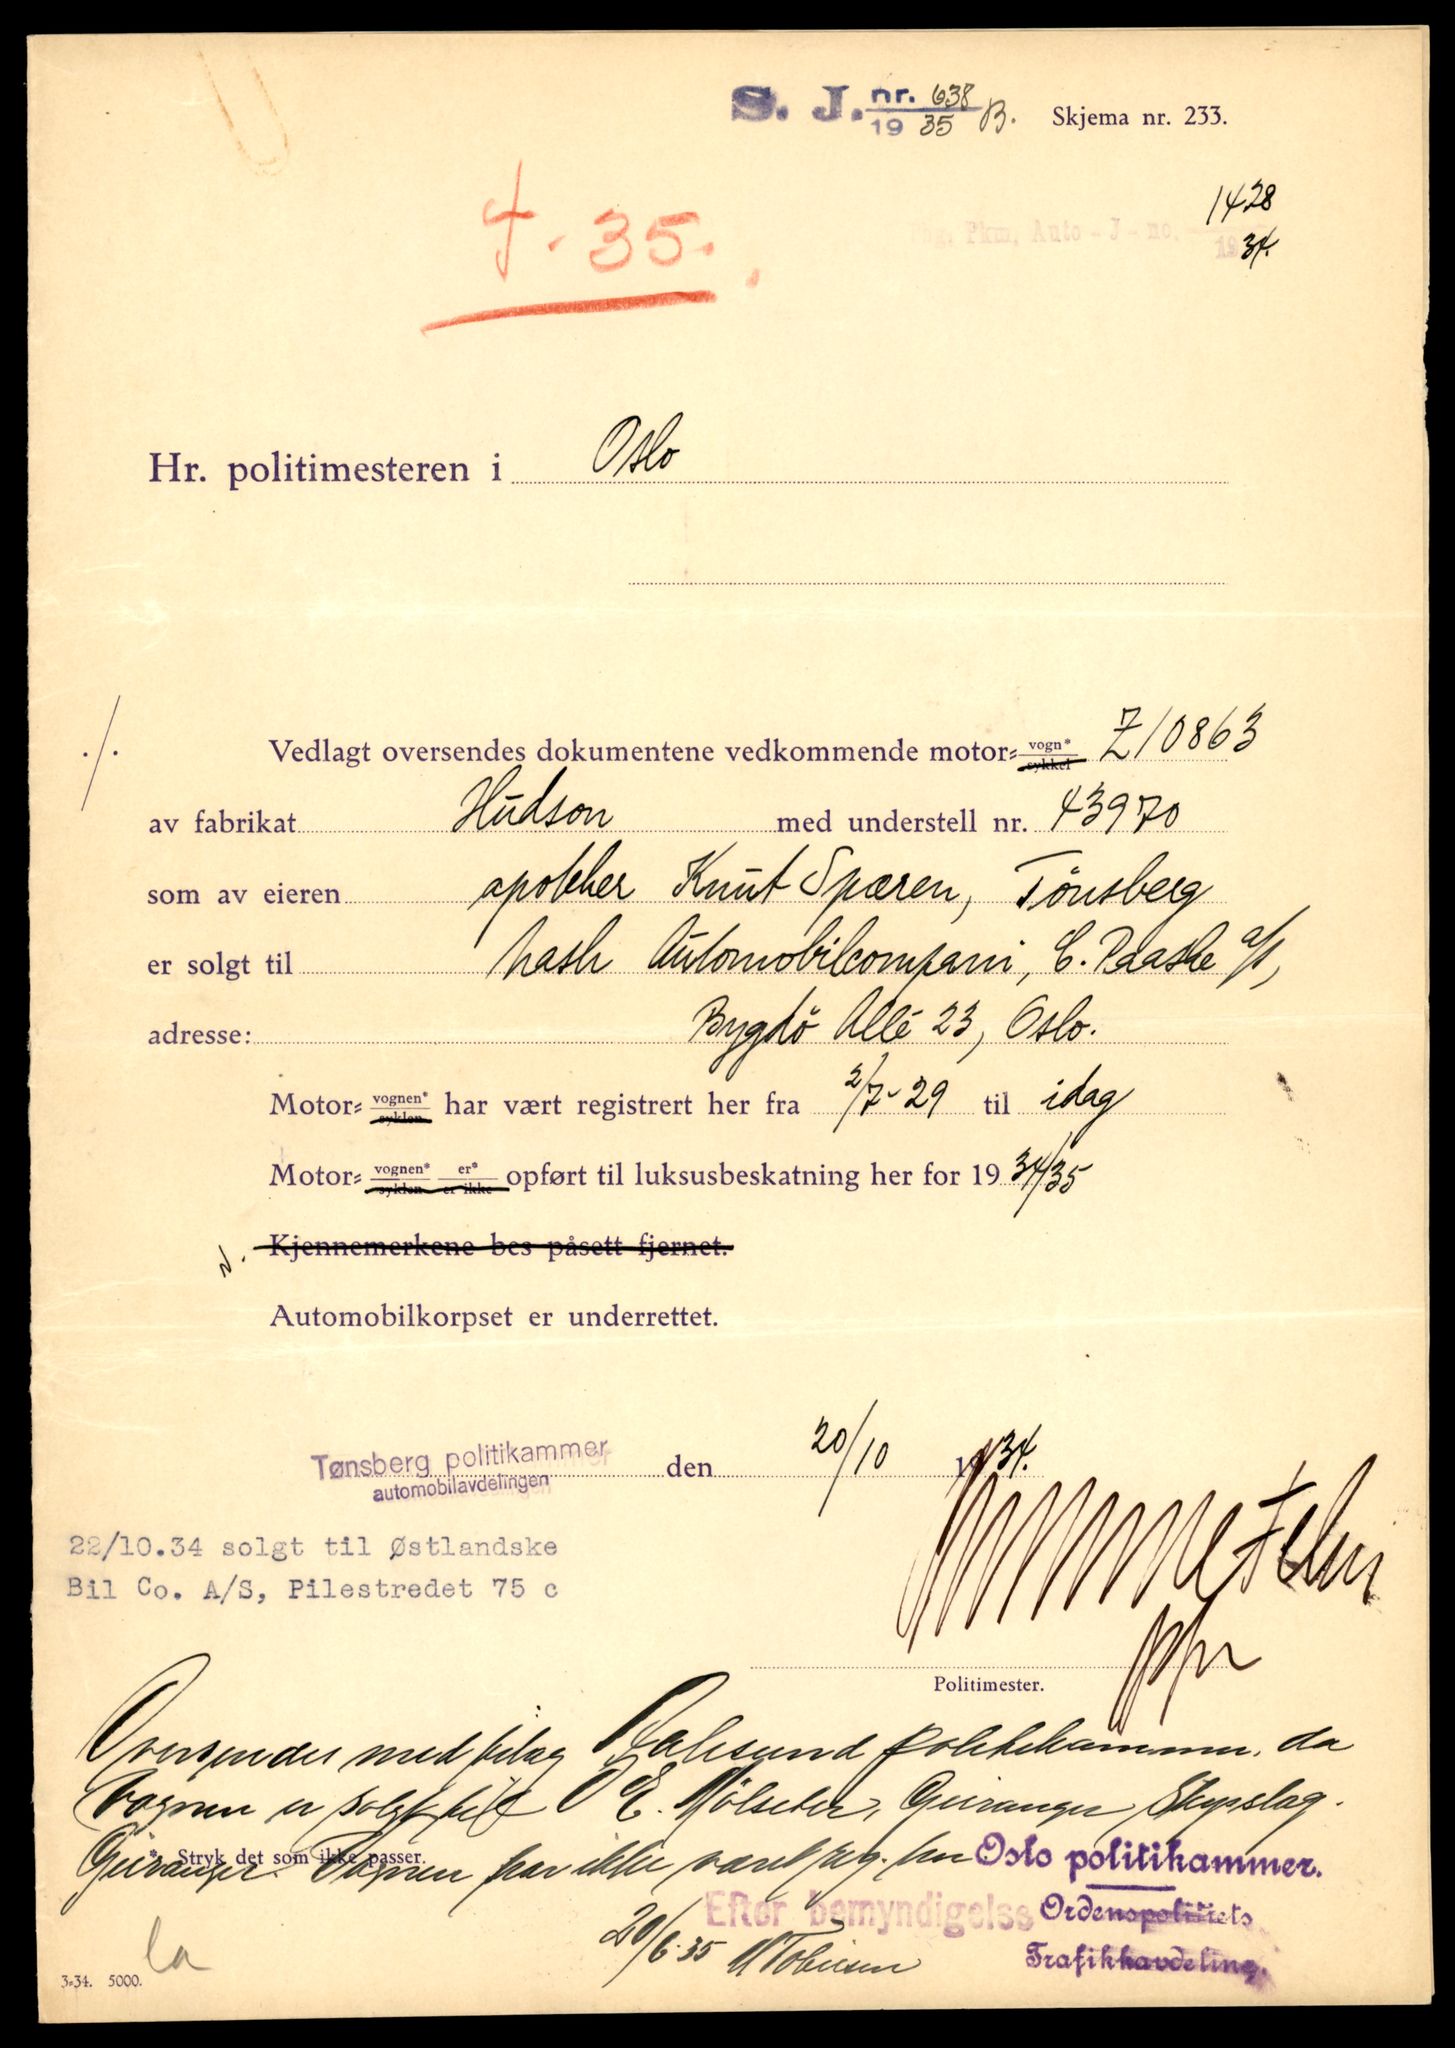 S. J. nr. 638 B. Skjema nr. 233.
19 35
1428
Pkm, Auto - J - no.
19 34.
4. 35.
Hr. politimesteren i Oslo
./. Vedlagt oversendes dokumentene vedkommende motor= vogn* Z10863
sykkel
av fabrikat Hudson med understell nr. 43970
som av eieren apoteker Knut Spæren, Tönsberg
er solgt til Nash Automobilcompani, C. Paaske a/s,
adresse: Bygdö Allé 23, Oslo.
Motor= vognen* har vært registrert her fra 2/7-29 til idag
syklen
Motor= vognen* er* opført til luksusbeskatning her for 19 34/35
syklen er ikke
Kjennemerkene bes påsett fjernet.
Automobilkorpset er underrettet.
Tønsberg politikammer den 20/10 1934.
automobilavdelingen
22/10.34 solgt til Østlandske
Bil Co. A/S, Pilestredet 75 c
Politimester.
Oversendes med bilag Aalesund politikammer, da
Vognen er solgt til O E. Mölseter, Geiranger Skysslag.
Geiranger. Vognen har ikke vært reg. her
* Stryk det som ikke passer.
Oslo politikammer.
Efter bemyndigelse Ordenspolitiets
20/6-35 Tobiesen Trafikkavdeling.
3=34. 5000.